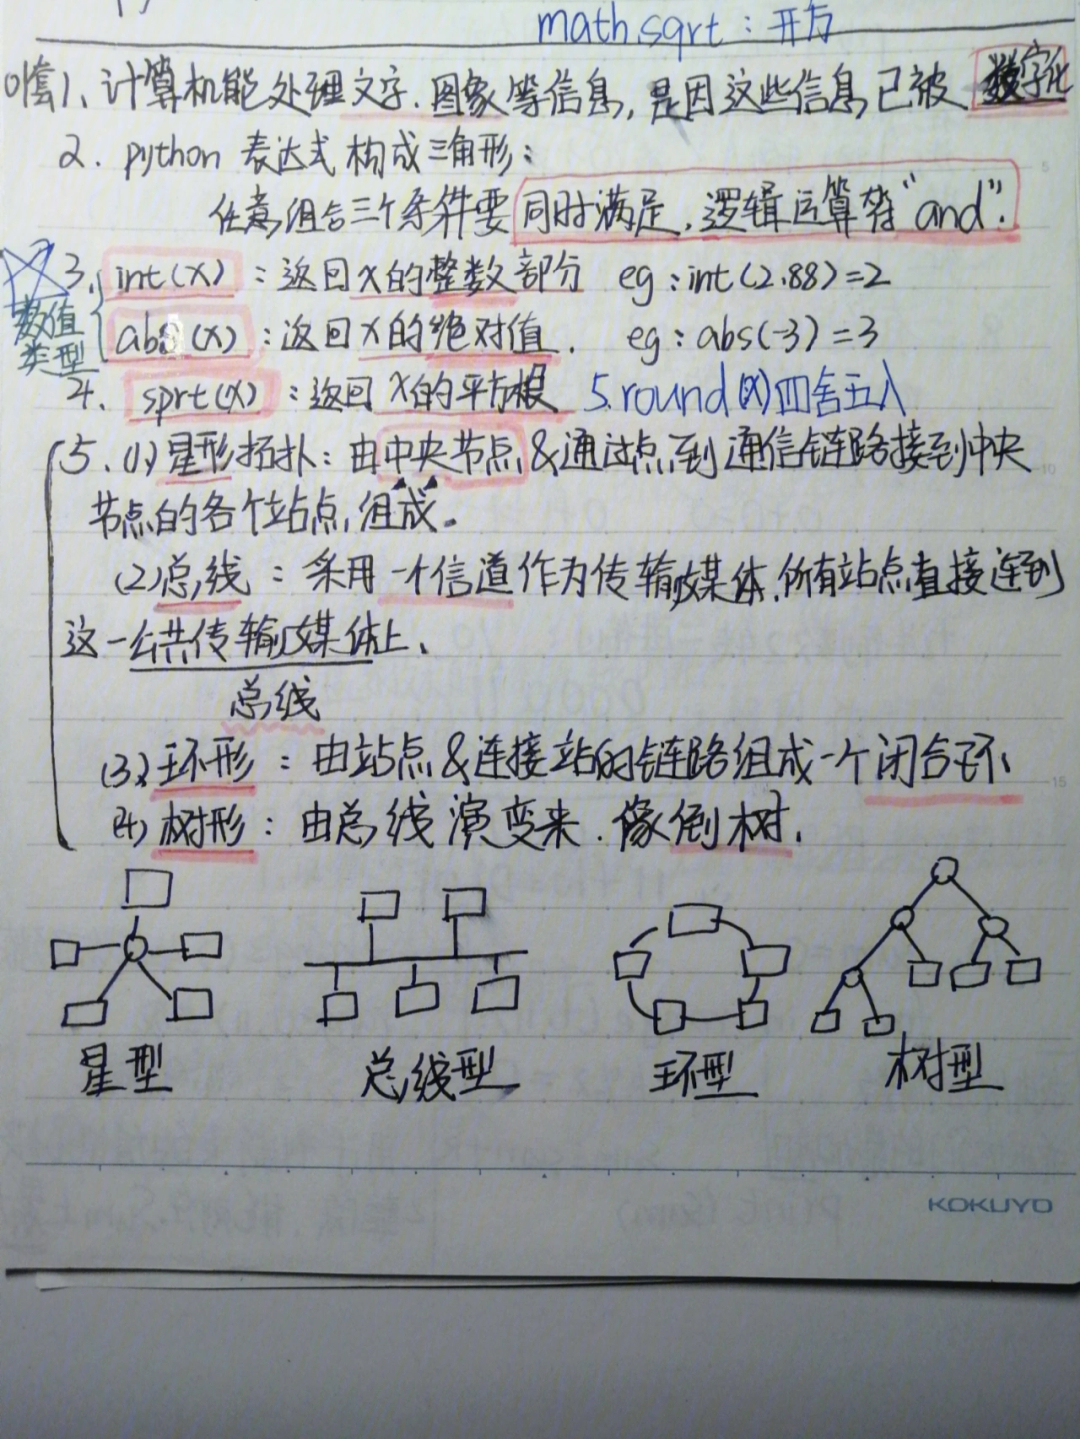 math.sqrt：开方
1、计算机能处理文字、图象等信息，是因这些信息已被 数字化
2. python 表达式构成三角形：
任意组合三个条件要同时满足，逻辑运算符“and”.
3. int(x)：返回x的整数部分 eg：int(2.88)=2
数值
类型
abs(x)：返回x的绝对值. eg：abs(-3)=3
4. sprt(x)：返回x的平方根 5.round(x)四舍五入
5、(1)星形拓扑：由中央节点&通过点到通信链路接到中央
节点的各个站点组成。
(2)总线：采用一个信道作为传输媒体.所有站点直接连到
这一公共传输媒体上、
总线
(3)环形：由站点&连接站的链路组成一个闭合环
(4)树形：由总线演变来.像倒树.
星型 总线型 环型 树型
KOKUYO